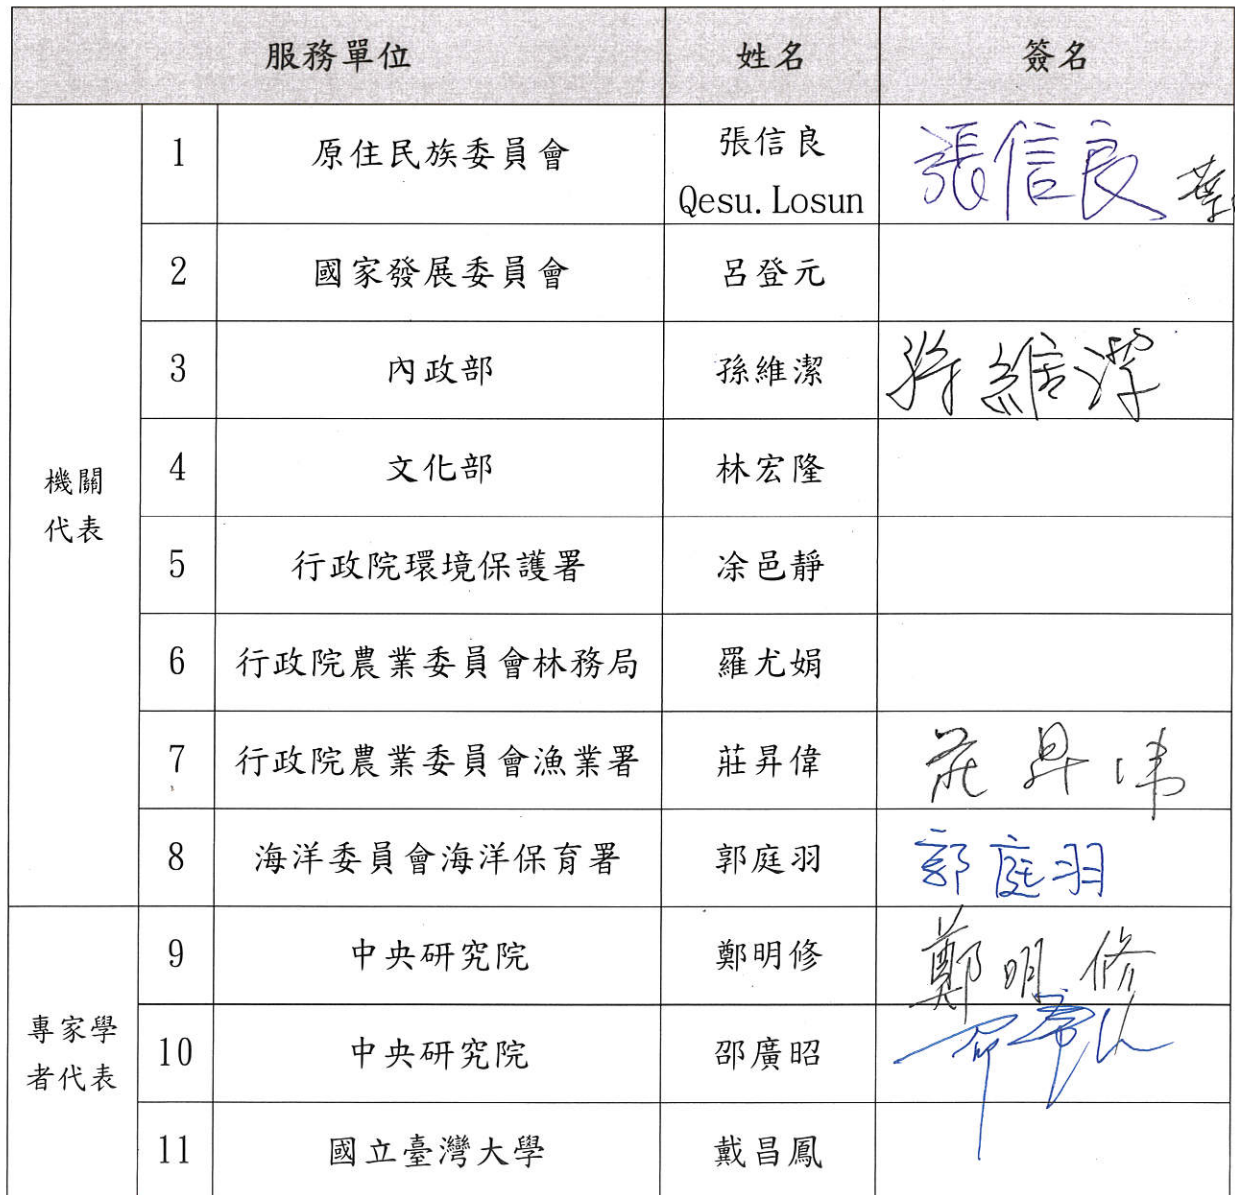 服務單位 姓名 簽名
機關
代表
1 原住民族委員會 張信良 張信良
Qesu.Losun
2 國家發展委員會 呂登元
3 內政部 孫維潔 孫維潔
4 文化部 林宏隆
5 行政院環境保護署 凃邑靜
6 行政院農業委員會林務局 羅尤娟
7 行政院農業委員會漁業署 莊昇偉 莊昇偉
8 海洋委員會海洋保育署 郭庭羽 郭庭羽
專家學
者代表
9 中央研究院 鄭明修 鄭明修
10 中央研究院 邵廣昭
11 國立臺灣大學 戴昌鳳